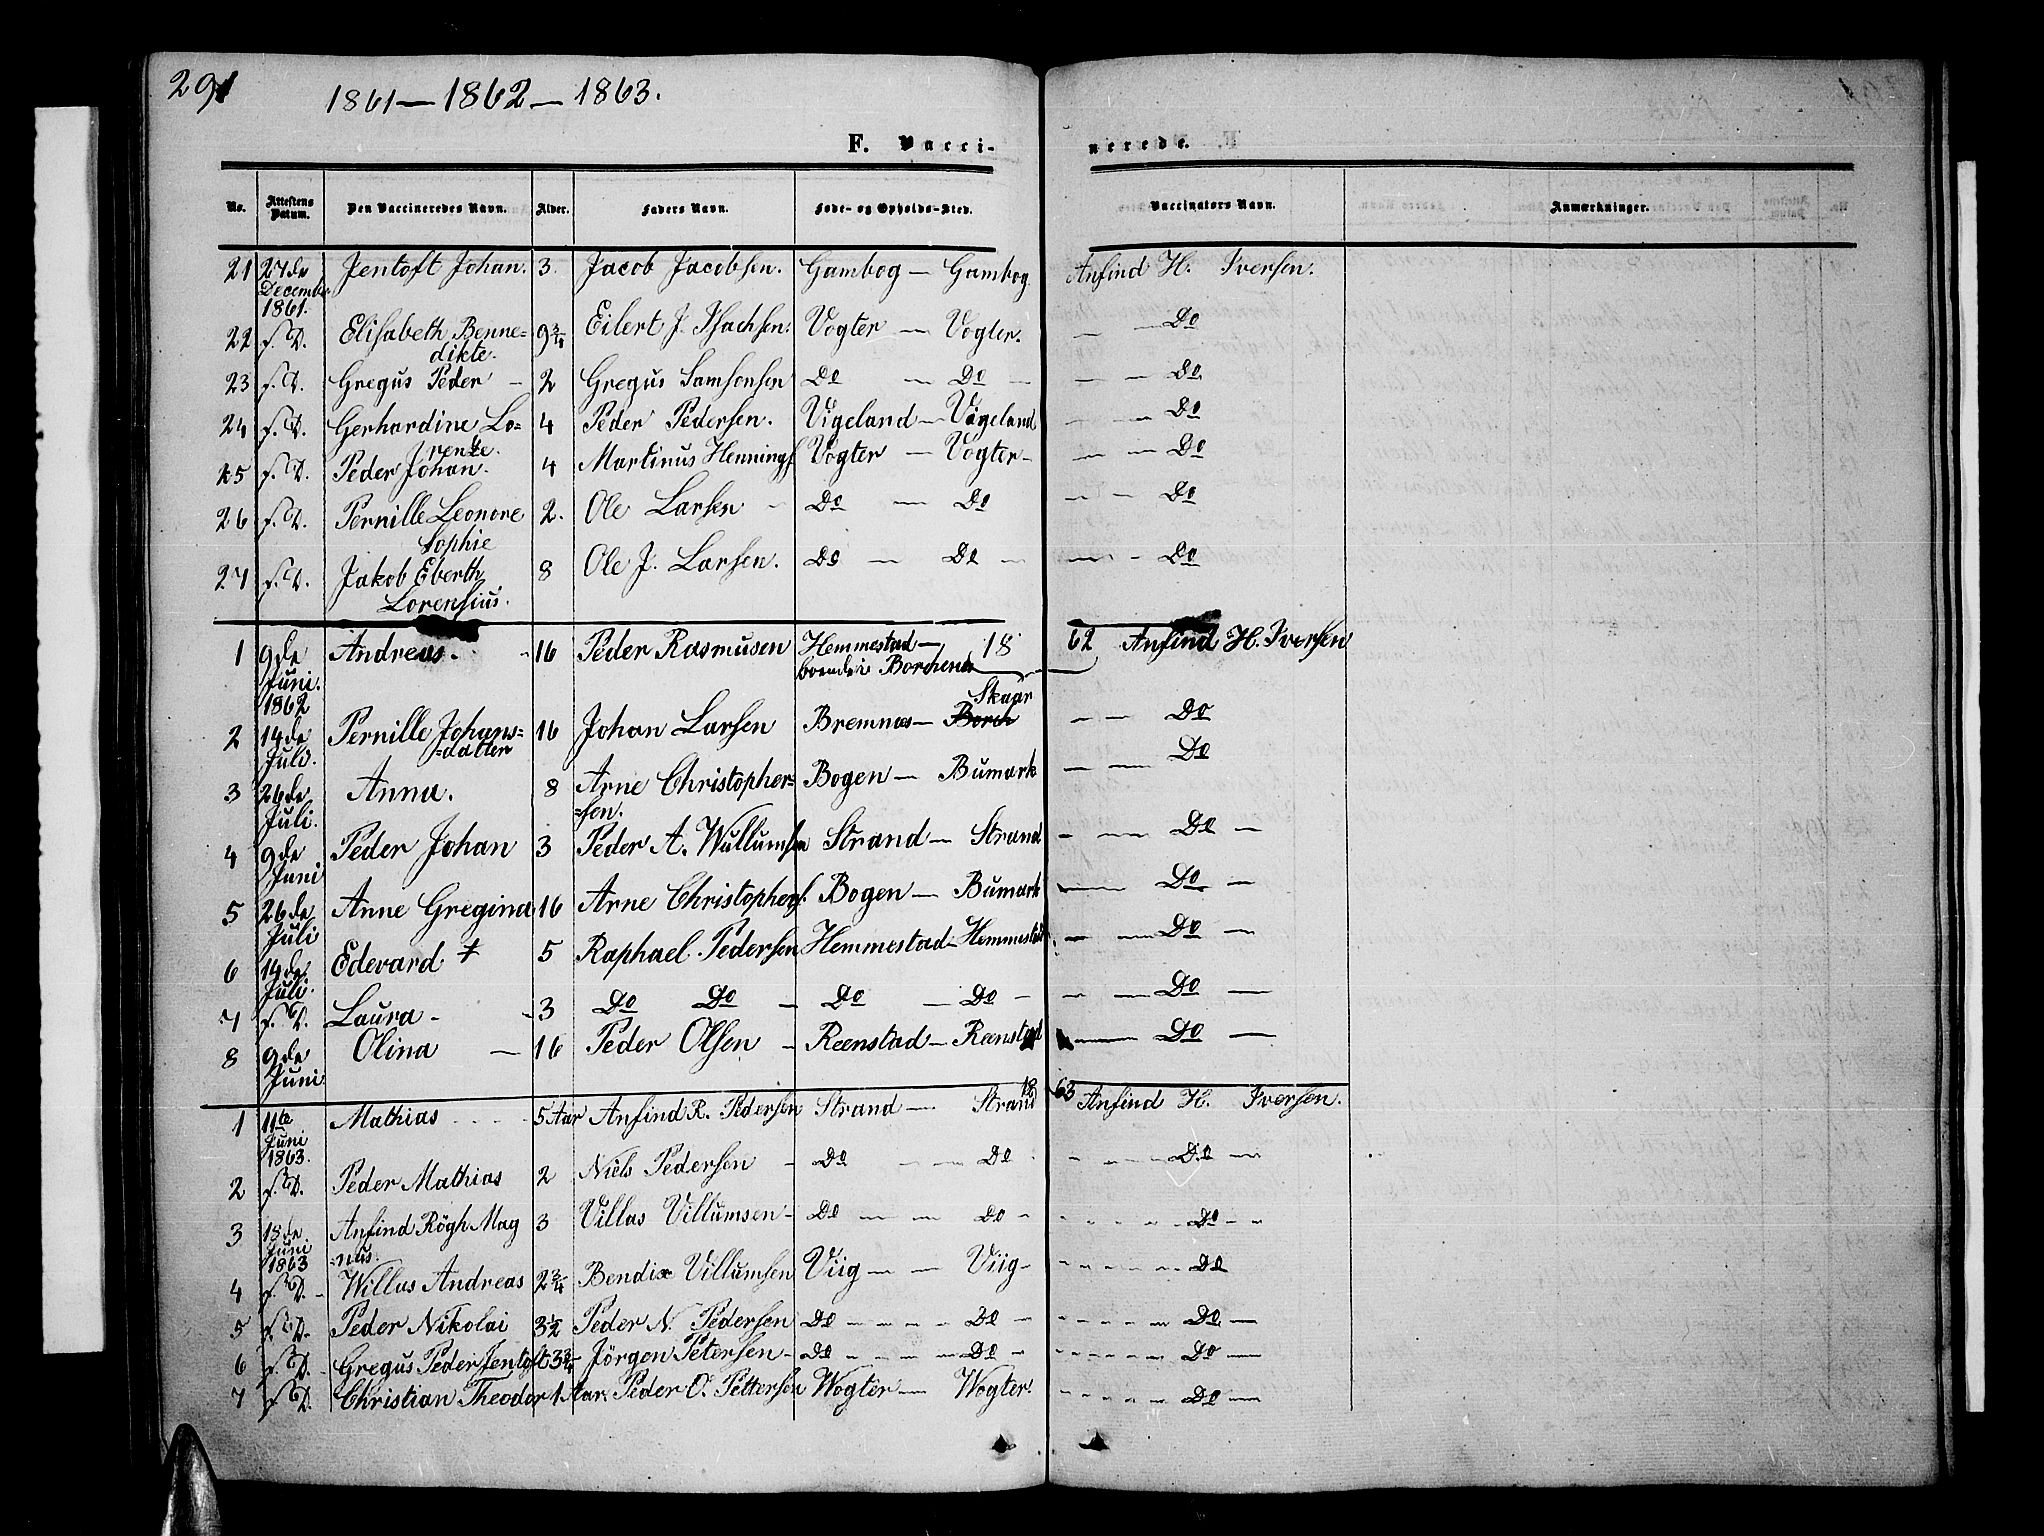 291
1861 — 1862 — 1863.
F. Vacci-
nerede.
No. Attestens Datum. Den Vaccineredes Navn. Alder. Faders Navn. Føde- og Opholds-Sted. Vaccinators Navn. Anmærkninger.
21 27de December 1861. Jentoft Johan. 3. Jacob Jacobsen. Gambog — Gambog Anfind H. Iversen.
22 s. D. Elisabeth Benne=dikte. 9¾ Eilert J. Isachsen. Vogter — Vogter. — Do
23 s. D. Gregus Peder — 2 Gregus Samsonsen Do — Do — — — Do
24 s. D. Gerhardine Lo=rentze. 4 Peder Pedersen. Vigeland — Vigeland — — Do
25 s. D. Peder Johan. 4 Martinus Hennings. Vogter — Vogter — — — Do
26 s. D. Pernille Leonore Sophie 2. Ole Larsen — Do — Do — — Do
27 s. D. Jakob Eberth Lorensius. 8 Ole J. Larsen. Do — Do — — — Do
1 9de Juni. 1862 Andreas. 16 Peder Rasmusen Hemmestad — boende i Borchenes 18 62 Anfind H. Iversen
2 14de Juli. Pernille Johans=datter 16 Johan Larsen Bremnes — Borch Skaar — — Do
3 26de Juli. Anna. 8 Arne Christopher=sen. Bogen — Bumark — — Do
4 9de Juni Peder Johan 3 Peder A. Wullumsen Strand — Strand — — Do —
5 26de Juli Anne Gregina 16 Arne Christophers. Bogen — Bumark — Do —
6 14de Juli. Edevard ‡ 5 Raphael Pedersen Hemmestad — Hemmestad — — Do —
7 s. D. Laura — 3 Do Do — Do — Do — — — Do —
8 9de Juni Olina — 16 Peder Olsen — Reenstad — Reenstad — Do —
1 11te Juni 1863. Mathias 5 Aar Anfind R. Pedersen Strand — Strand 18 63 Anfind H. Iversen.
2 s. D. Peder Mathias 2 Niels Pedersen — Do — — Do - - - - Do —
3 15de Juni 1863 Anfind Rögh Mag=nus. 3 Villas Villumsen — Do — — Do - - - - - Do - -
4 s. D. Willas Andreas 2¾ Bendix Villumsen Viig — — Viig - - - - - - Do
5 s. D. Peder Nikolai 3½ Peder N. Pedersen Do - - - - Do - - - - - - Do —
6 s. D. Gregus Peder Jentoft 3¾ Jörgen Petersen — Do - - - - Do - - - - - - Do —
7 s D. Christian Theodor 1 Aar. Peder O. Pettersen Wogter — Wogter. - - - - - Do —